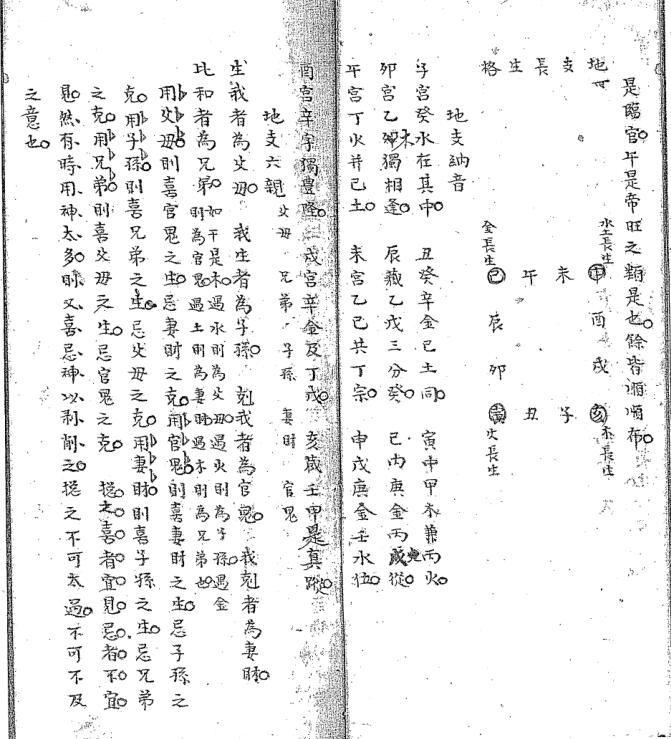 是臨官午是帝旺之類是也餘皆順順布
地支長生格
水土長生
申 酉 戌 亥
木長生
未 子
午 丑
金長生
巳 辰 卯 寅
火長生
地支納音
子宮癸水在其中 丑癸辛金己土同 寅中甲木兼丙火
卯宮乙木獨相逢 辰藏乙戊三分癸 巳內庚金丙戊從
午宮丁火并己土 未宮乙己共丁宗 申戊庚金壬水位
酉宮辛字獨豊隆 戌宮辛金及丁戊 亥藏壬甲是真蹤
地支六親 父母 兄弟 子孫 妻財 官鬼
生我者為父母 我生者為子孫 剋我者為官鬼 我剋者為妻財
比和者為兄弟 如干是木遇水則為父母遇火則為子孫遇金
則為官鬼遇土則為妻財遇木則為兄弟也
用父母則喜官鬼之生忌妻財之克用官鬼則喜妻財之生忌子孫之
克用子孫則喜兄弟之生忌父母之克用妻財則喜子孫之生忌兄弟
之克用兄弟則喜父母之生忌官鬼之克 総之喜者宜見忌者不宜
見然有時用神太多則又喜忌神以剥削之総之不可太過不可不及
之意也